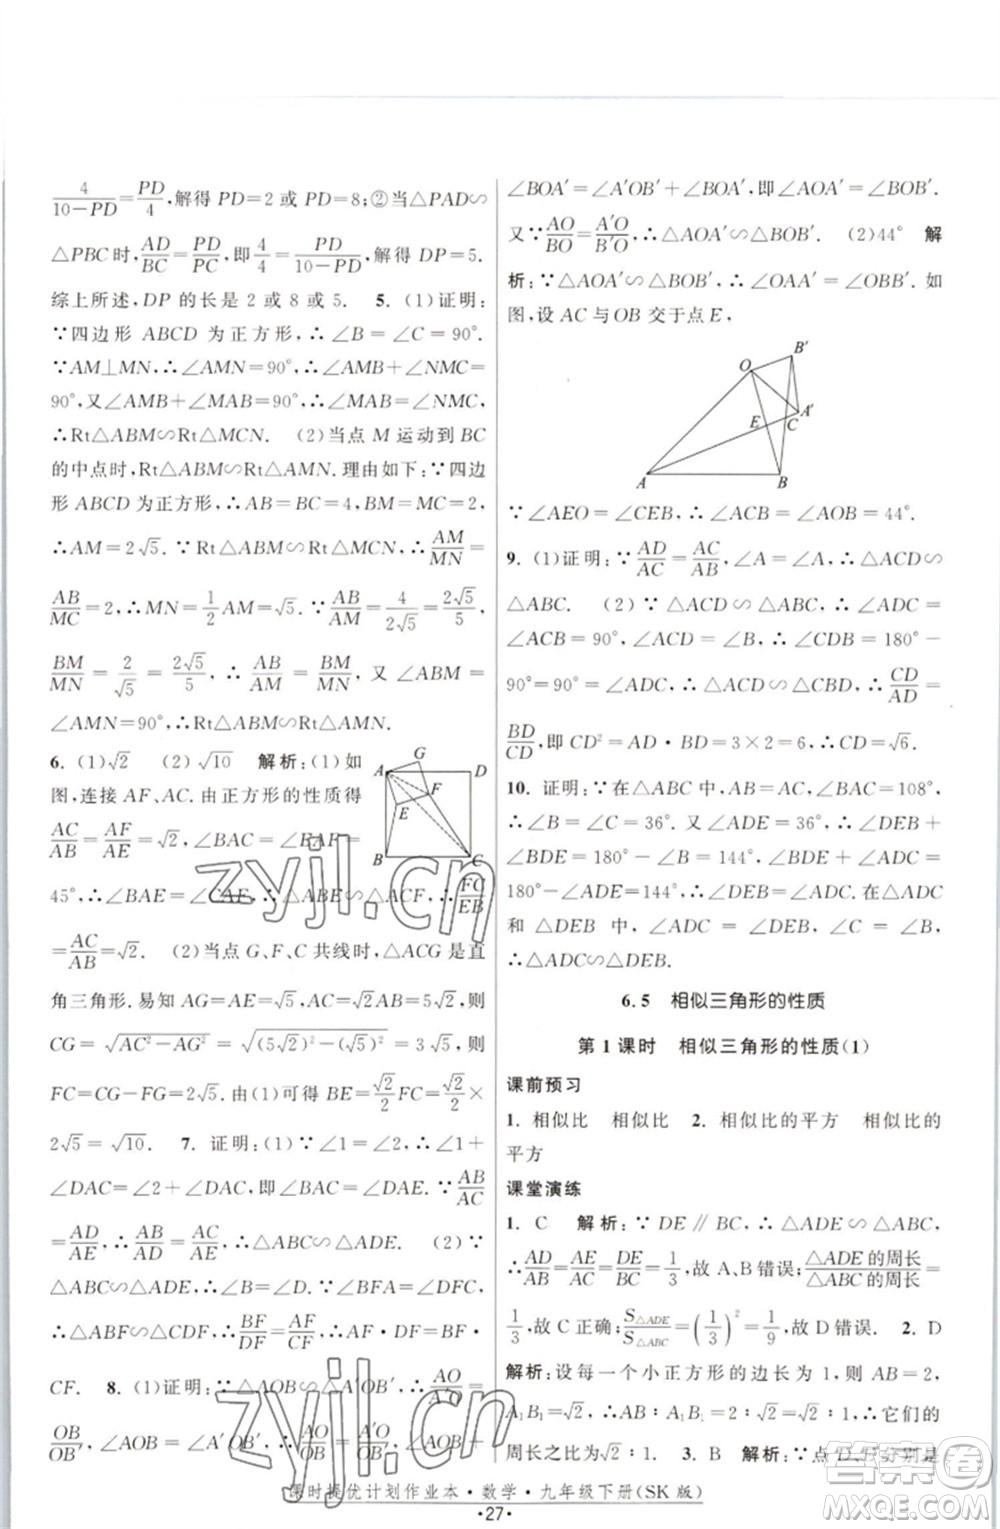 4/(10-PD)=PD/4,解得 PD=2 或 PD=8;②当△PAD∽
△PBC时,AD/BC=PD/PC,即4/4=PD/(10-PD),解得 DP=5.
综上所述,DP 的长是 2 或 8 或 5. 5. (1)证明:
∵四边形 ABCD 为正方形,∴∠B=∠C=90°.
∵AM⊥MN,∴∠AMN=90°.∴∠AMB+∠NMC=
90°,又∠AMB+∠MAB=90°,∴∠MAB=∠NMC,
∴Rt△ABM∽Rt△MCN. (2)当点 M 运动到 BC
的中点时,Rt△ABM∽Rt△AMN.理由如下:∵四边
形 ABCD 为正方形,∴AB=BC=4,BM=MC=2,
∴AM=2√5. ∵Rt△ABM∽Rt△MCN,∴AM/MN=
AB/MC=2,∴MN=1/2AM=√5. ∵AB/AM=4/(2√5)=2√5/5,
BM/MN=2/√5=2√5/5,∴AB/AM=BM/MN,又∠ABM=
∠AMN=90°,∴Rt△ABM∽Rt△AMN.
6. (1)√2 (2)√10 解析:(1)如
图,连接 AF、AC.由正方形的性质得
AC/AB=AF/AE=√2,∠BAC=∠EAF=
45°,∴∠BAE=∠CAF,∴△BAE∽△CAF,∴FC/EB
=AC/AB=√2. (2)当点 G、F、C 共线时,△ACG 是直
角三角形.易知 AG=AE=√5,AC=√2AB=5√2,则
CG=√(AC²-AG²)=√((5√2)²-(√5)²)=3√5,∴
FC=CG-FG=2√5.由(1)可得 BE=FC/√2=√2/2×
2√5=√10. 7. 证明:(1)∵∠1=∠2,∴∠1+
∠DAC=∠2+∠DAC,即∠BAC=∠DAE.∵AB/AC
=AD/AE,∴AB/AD=AC/AE,∴△ABC∽△ADE. (2)∵
△ABC∽△ADE,∴∠B=∠D.∵∠BFA=∠DFC,
∴△ABF∽△CDF,∴BF/DF=AF/CF,∴BF·CF=DF·AF
CF. 8. (1)证明:∵△AOB∽△A′OB′,∴AO/A′O=
OB/OB′,∠AOB=∠A′OB′,∴AO/OB=A′O/OB′,∠AOB+
∠BOA′=∠A′OB′+∠BOA′,即∠AOA′=∠BOB′.
又∵AO/BO=A′O/B′O,∴△AOA′∽△BOB′. (2)44° 解
析:∵△AOA′∽△BOB′,∴∠OAA′=∠OBB′.如
图,设 AC 与OB 交于点E,
O B′ A′ E C A B
∵∠AEO=∠CEB,∴∠ACB=∠AOB=44°.
9. (1)证明:∵AD/AC=AC/AB,∠A=∠A,∴△ACD∽
△ABC. (2)∵△ACD∽△ABC,∴∠ADC=
∠ACB=90°,∠ACD=∠B,∴∠CDB=180°-
90°=90°=∠ADC,∴△ACD∽△CBD,∴CD/AD=
BD/CD,即CD²=AD·BD=3×2=6,∴CD=√6.
10. 证明:∵在△ABC中,AB=AC,∠BAC=108°,
∴∠B=∠C=36°.又∵∠ADE=36°,∴∠DEB+
∠BDE=180°-∠B=144°,∠BDE+∠ADC=
180°-∠ADE=144°,∴∠DEB=∠ADC.在△ADC
和 △DEB 中,∵∠ADC=∠DEB,∠C=∠B,
∴△ADC∽△DEB.
6.5 相似三角形的性质
第 1 课时 相似三角形的性质(1)
课前预习
1. 相似比 相似比 2. 相似比的平方 相似比的
平方
课堂演练
1. C 解析:∵DE∥BC,∴△ADE∽△ABC,
∴AD/AB=AE/AC=DE/BC=1/3,故 A、B 错误;△ADE的周长/△ABC的周长=
1/3,故 C 正确;S△ADE/S△ABC=(1/3)²=1/9,故 D 错误. 2. D
解析:设每一个小正方形的边长为 1,则 AB=2,
A₁B₁=√2,∴AB∶A₁B₁=2∶√2=√2∶1,∴它们的
周长之比为√2∶1. 3. B 解析:∵点 D、F分别是
A G D F E B C
课时提优计划作业本·数学·九年级下册(SK版)
·27·
zyjl.cn
zyjl.cn